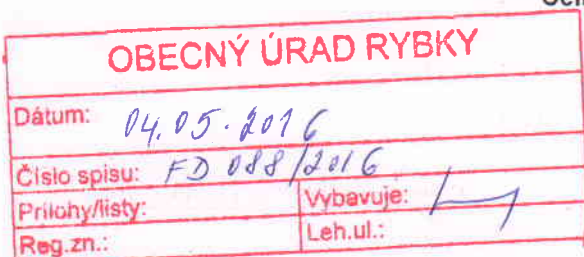 OBECNÝ ÚRAD RYBKY
Dátum: 04.05.2016
Číslo spisu: FD 088/2016
Prílohy/listy: Vybavuje:
Reg.zn.: Leh.ul.: